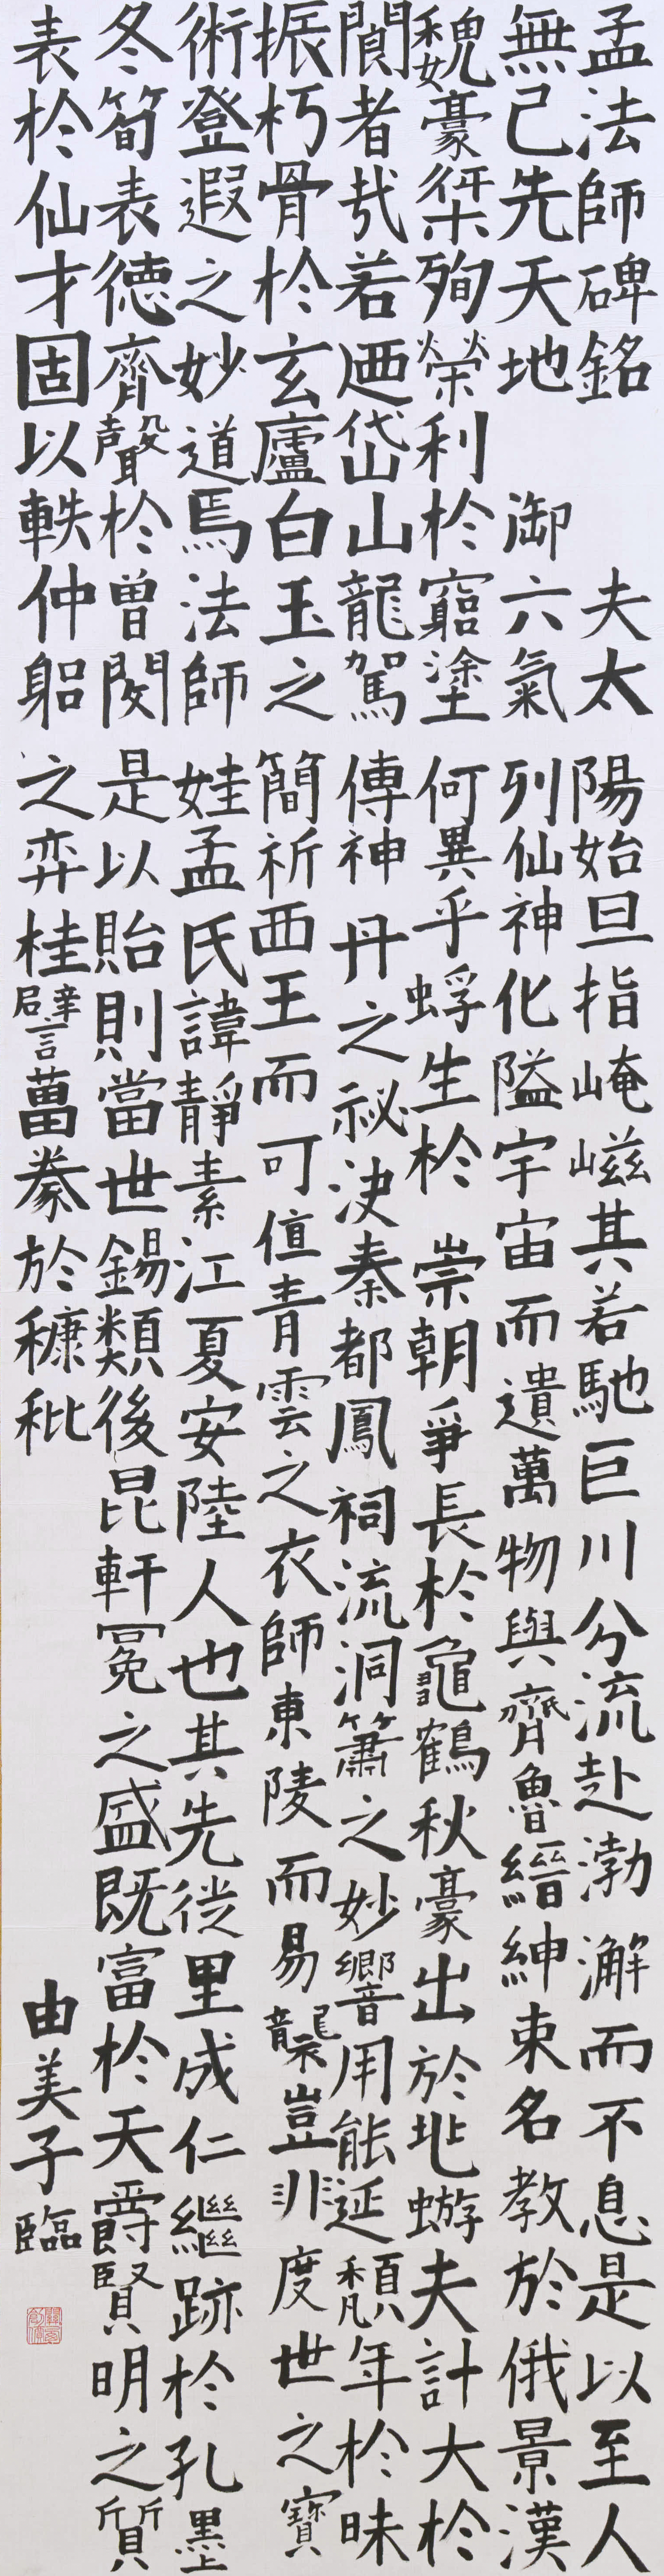 孟法師碑銘　夫太陽始旦指崦嵫其若馳巨川分流赴渤澥而不息是以至人
無己先天地　御六氣列仙神化隘宇宙而遺萬物與齊魯縉紳束名教於俄景漢
魏豪桀殉榮利於窮塗何異乎蜉生於崇朝爭長於龜鶴秋豪出於虵蝣夫計大於
閬者㢤若迺岱山龍駕傳神丹之祕決秦都鳳祠流洞簫之妙響用能延頹年於昧
振朽骨於玄廬白玉之簡祈西王而可值青雲之衣師東陵而易襲豈非度世之寶
術登遐之妙道焉法師娃孟氏諱靜素江夏安陸人也其先徙里成仁繼跡於孔墨
冬筍表德齊聲於曾閔是以貽則當世錫類後昆軒冕之盛既富於天爵賢明之質
表於仙才固以軼仲躳之弈桂譬葍豢於穅秕
由美子臨